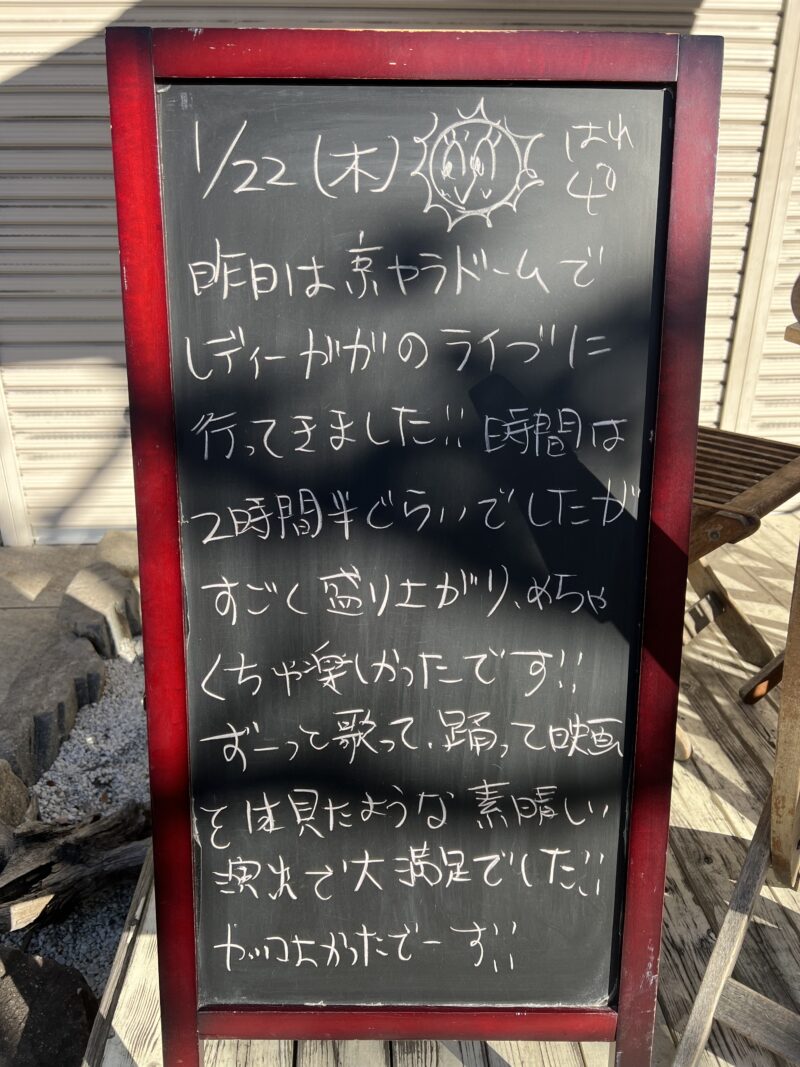 1/22 (木) はれ 4°
昨日は京セラドームで
レディーガガのライブに
行ってきました!! 時間は
2時間半ぐらいでしたが
すごく盛り上がり、めちゃ
くちゃ楽しかったです!!
ずーっと歌って、踊って映画
を 見たような 素晴しい
演出で大満足でした!!
カッコよかったでーす!!